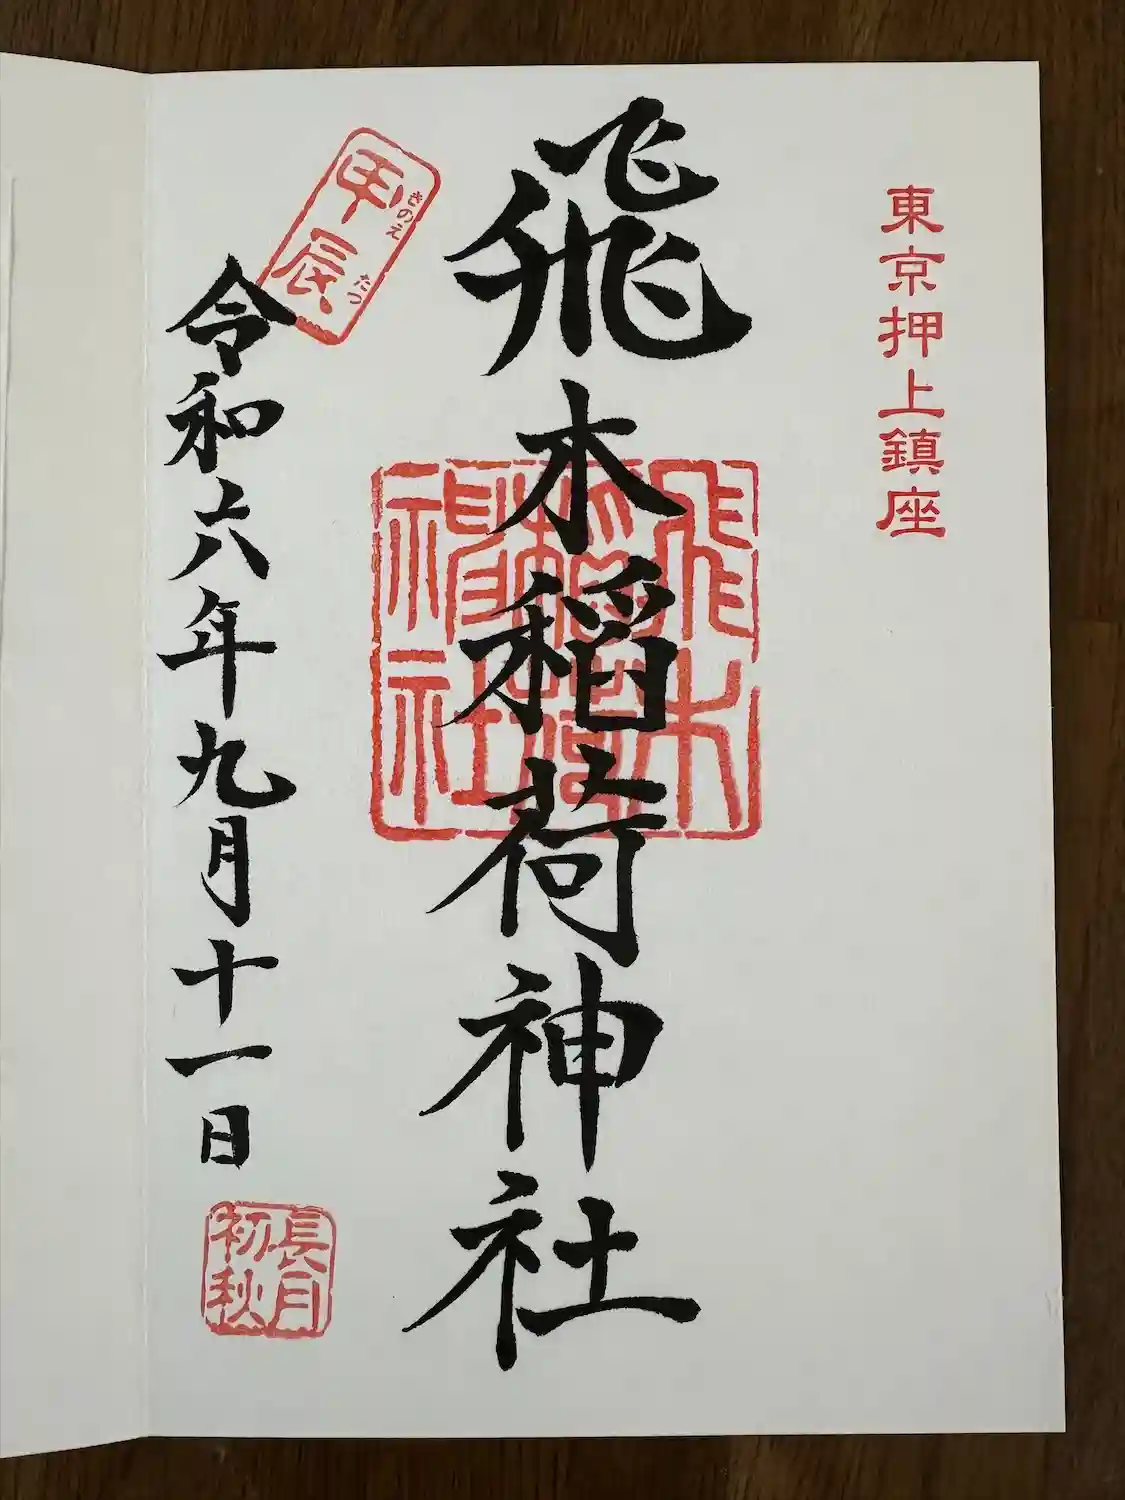 東京押上鎮座
飛木稲荷神社
飛木
稲荷
神社
甲辰
きのえ
たつ
令和六年九月十一日
長月
初秋